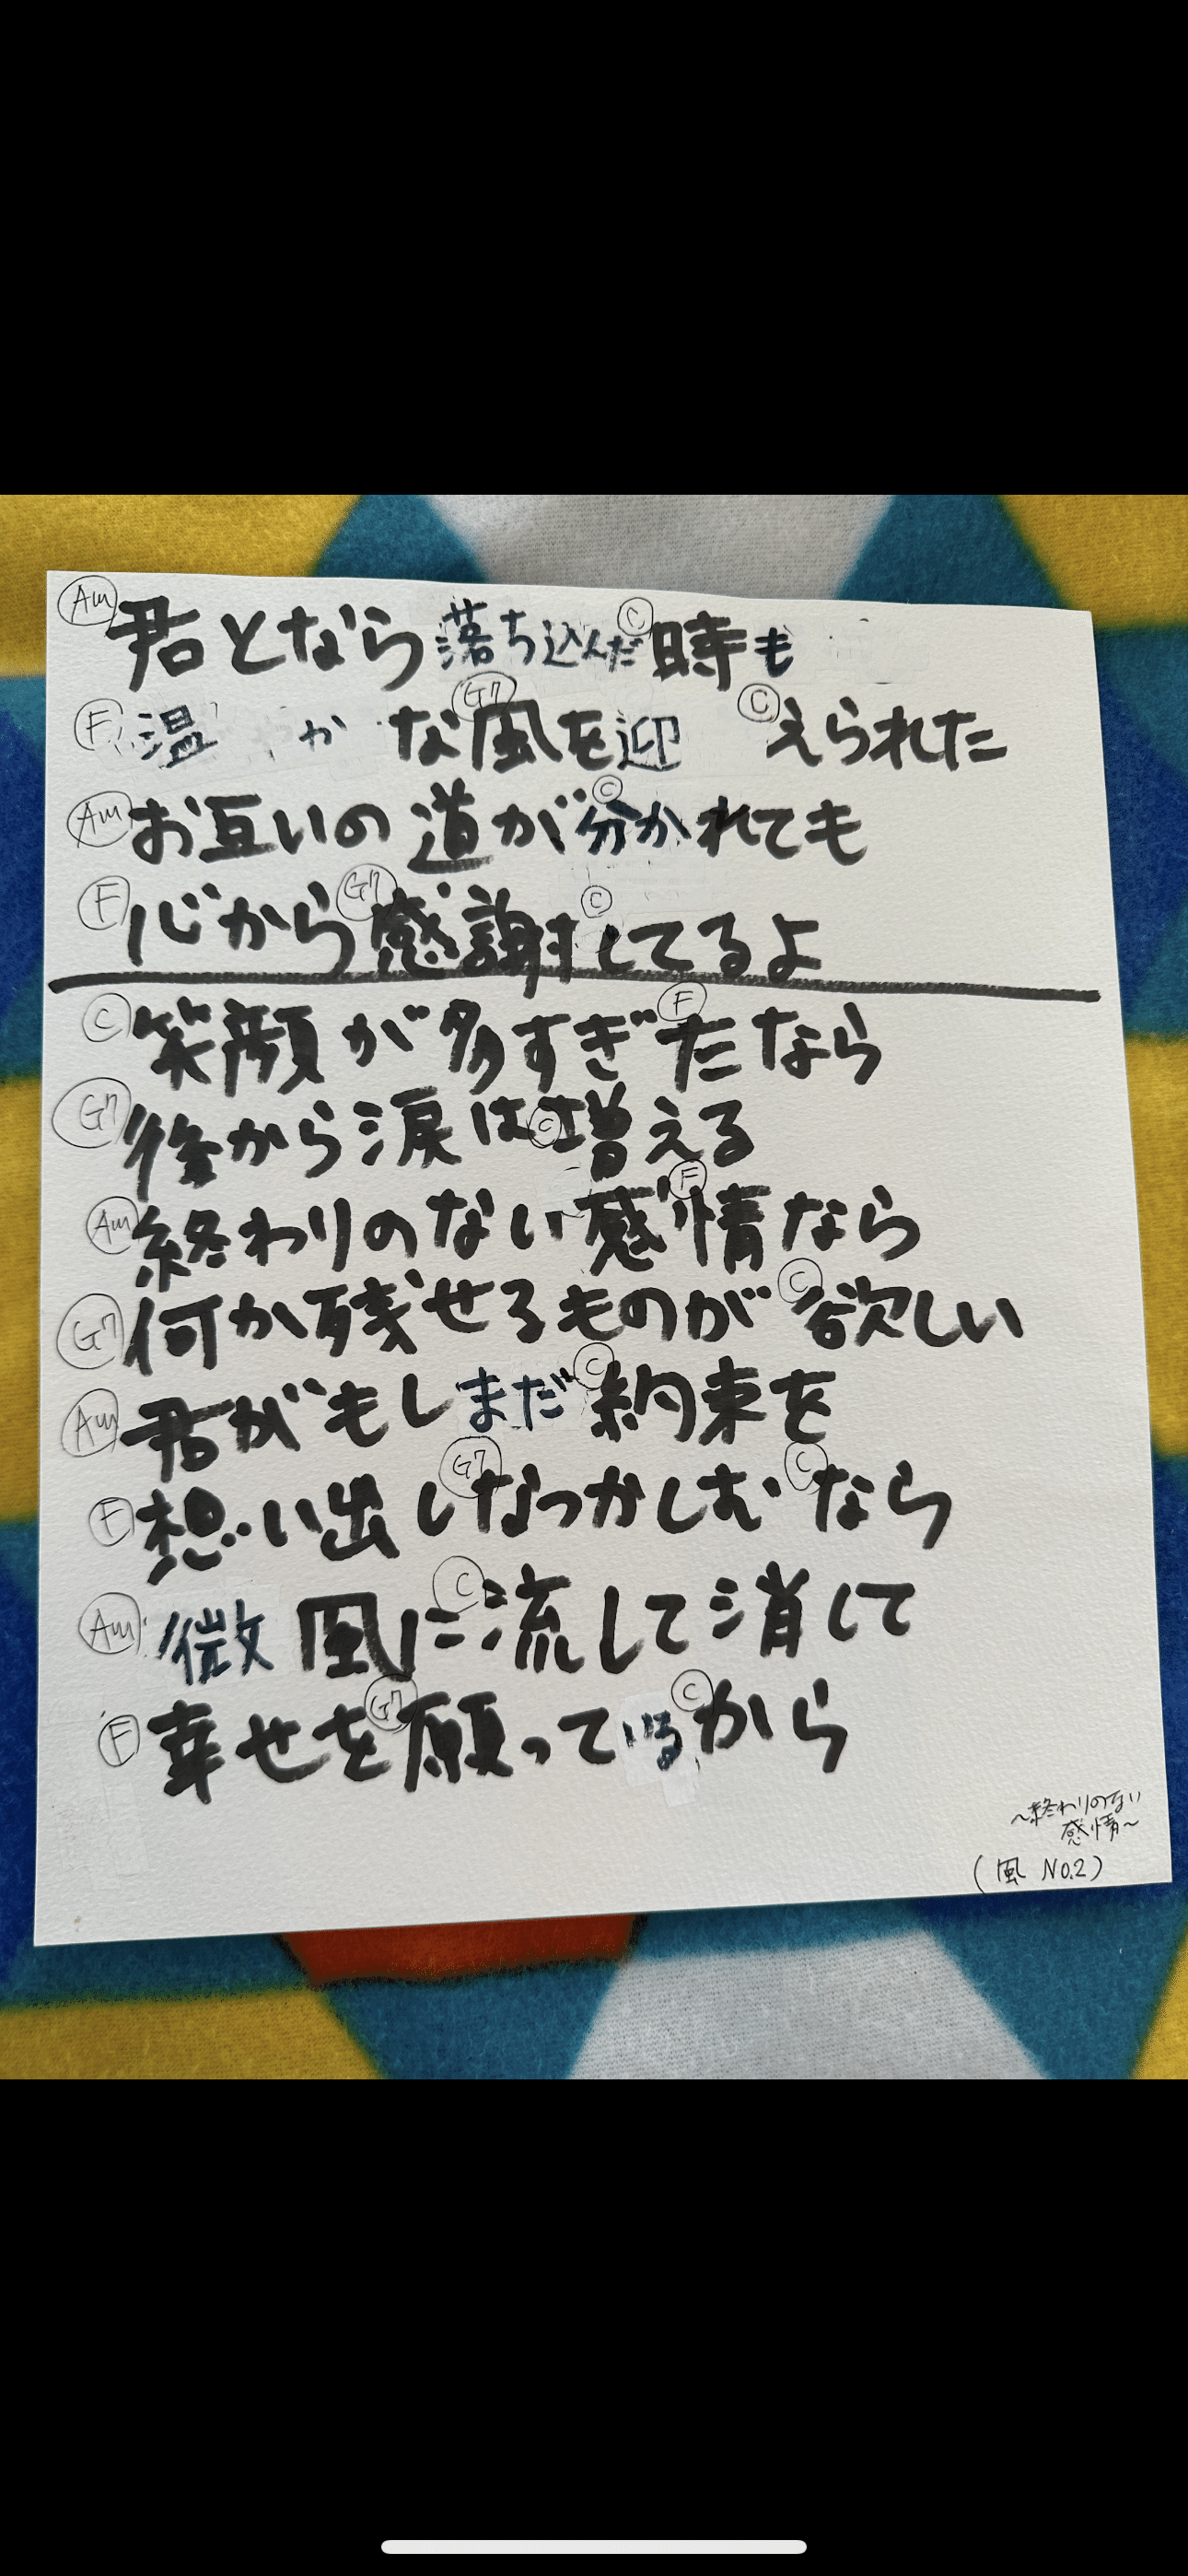 Am 君となら落ち込んだ C 時も
F 温かな G7 風を迎 C えられた
Am お互いの道が C 分かれても
F 心から G7 感謝 C してるよ
C 笑顔が多すぎ F たなら
G7 後から涙は C 増える
Am 終わりのない感 F 情なら
G7 何か残せるものが C 欲しい
Am 君がもしまだ C 約束を
F 想い出し G7 なつかしむ C なら
Am 微風に C 流して消して
F 幸せを G7 願っている C から
〜終わりのない
感情〜
(風 No.2)